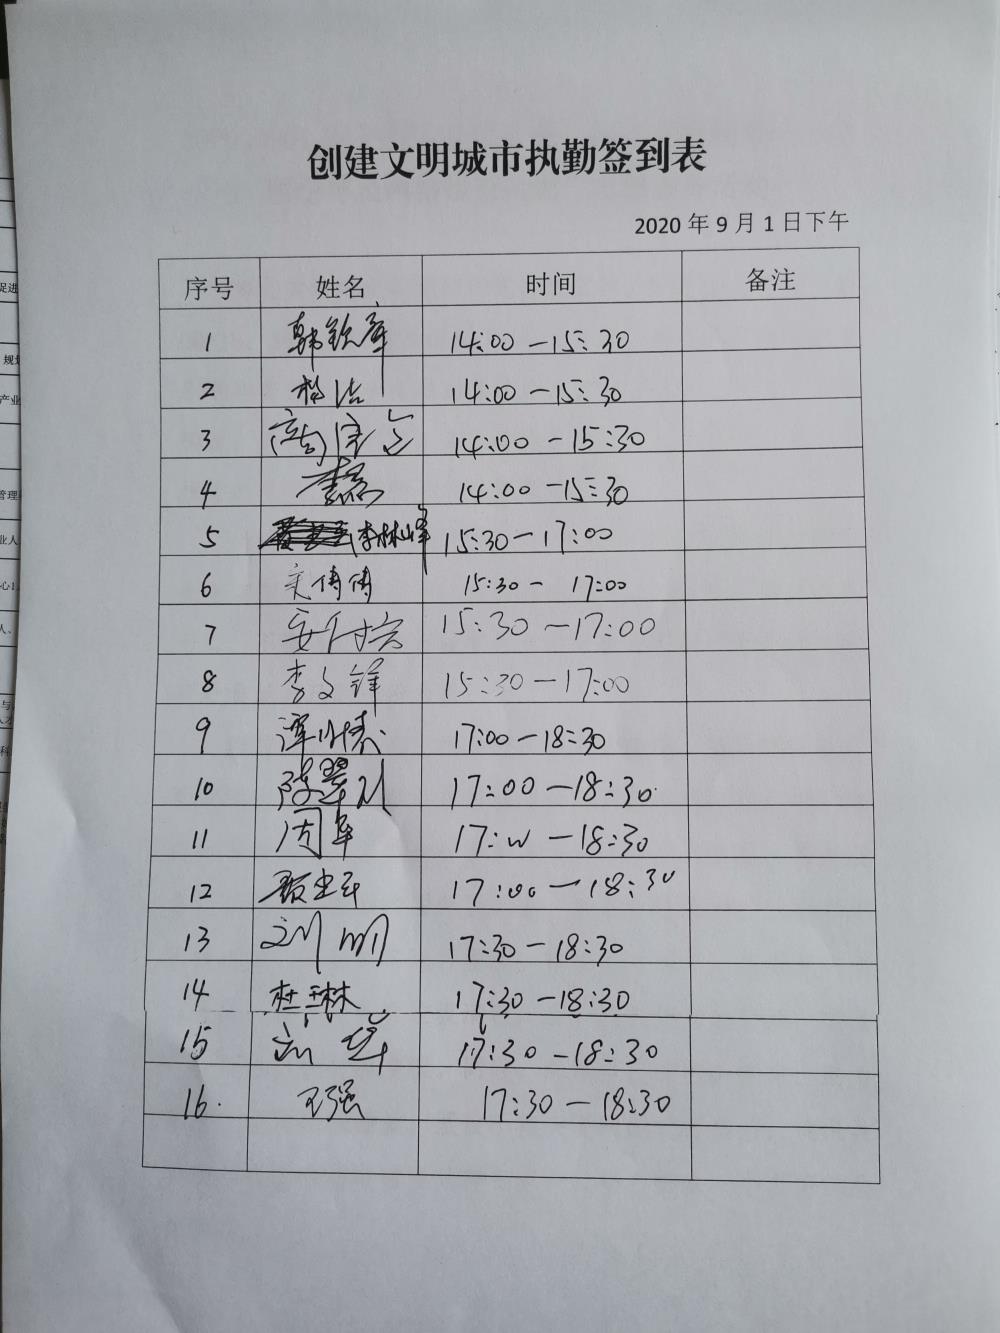 创建文明城市执勤签到表
2020年9月1日下午
序号 姓名 时间 备注
1 韩钦军 14:00-15:30
2 杨洁 14:00-15:30
3 14:00-15:30
4 14:00-15:30
5 李林峰 15:30-17:00
6 15:30-17:00
7 15:30-17:00
8 李文锋 15:30-17:00
9 17:00-18:30
10 17:00-18:30
11 周军 17:00-18:30
12 17:00-18:30
13 刘明 17:30-18:30
14 杜琳 17:30-18:30
15 17:30-18:30
16. 王强 17:30-18:30
促进
规划
产业
管理
业人